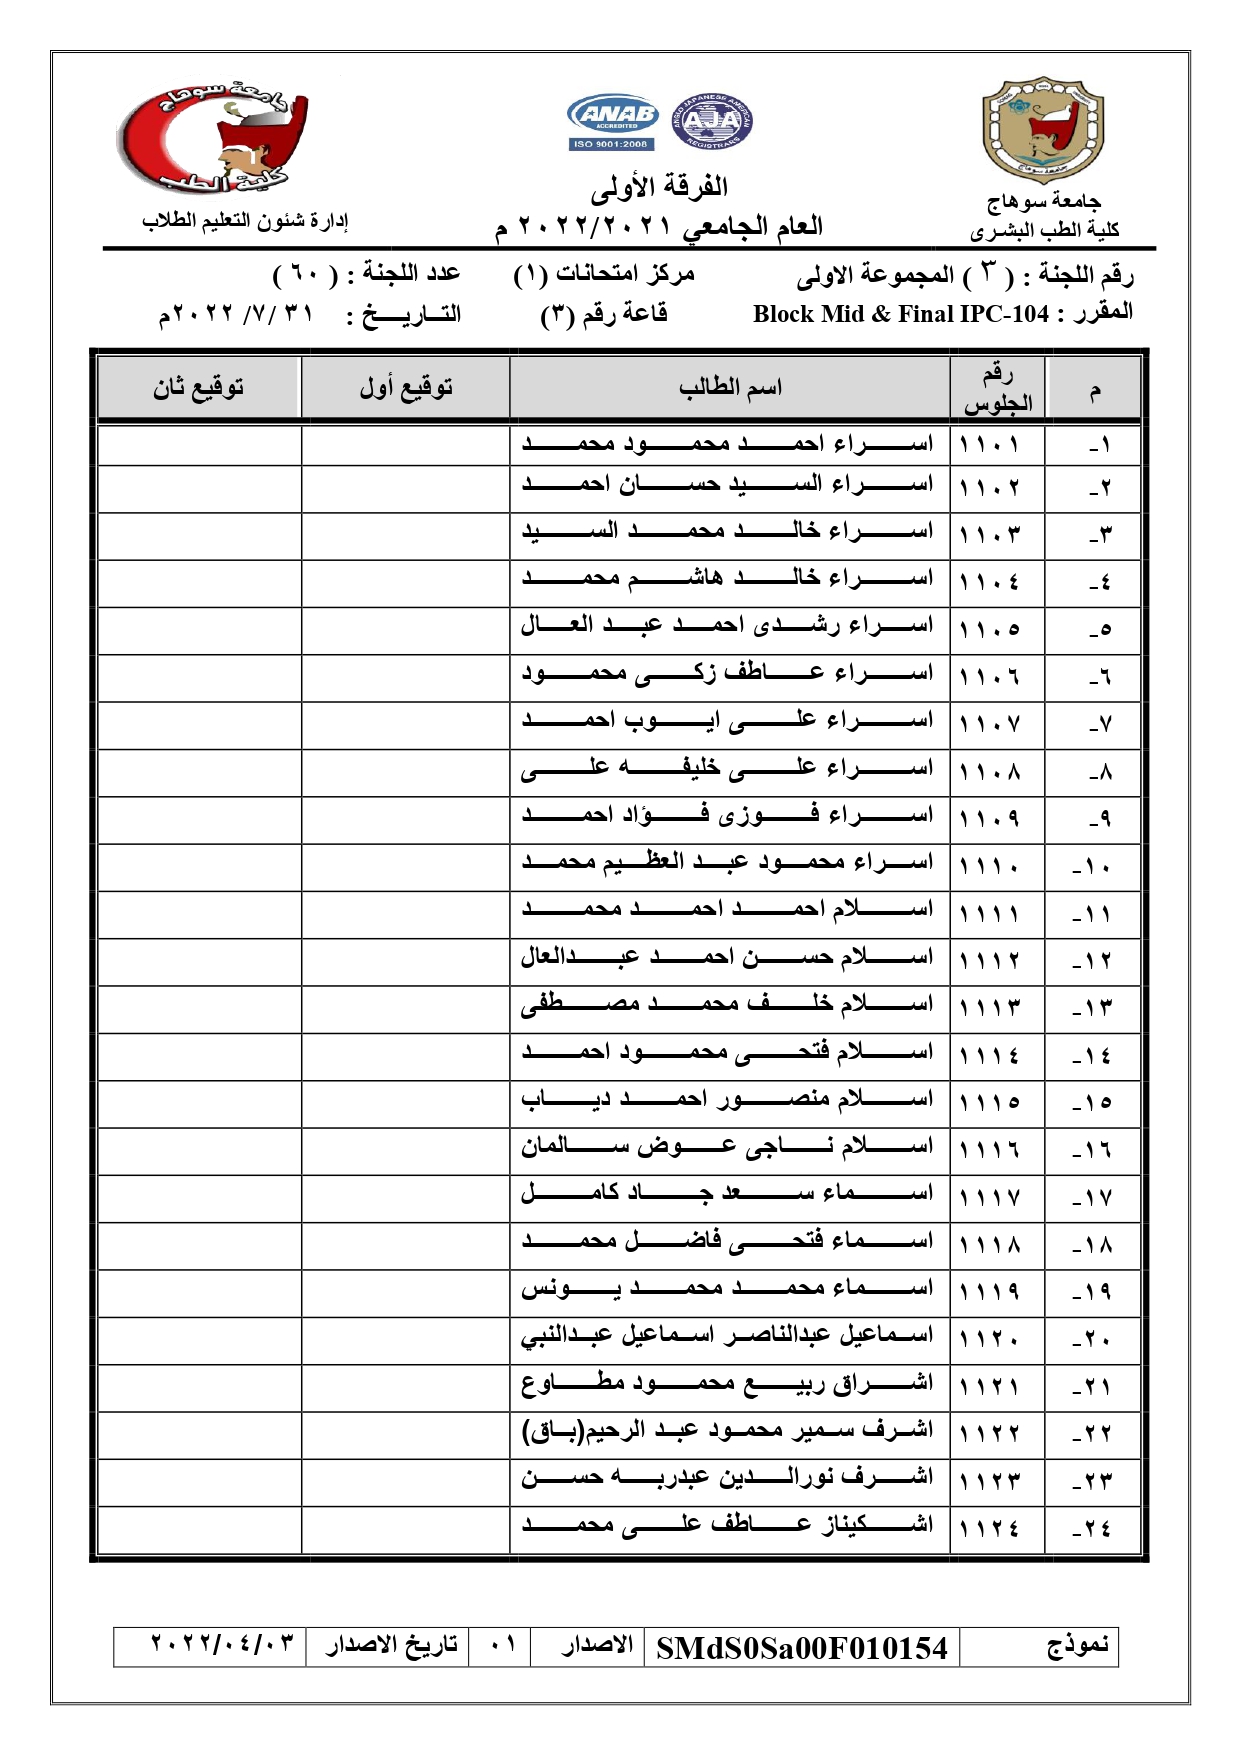 جامعة سوهاج
كلية الطب
ANAB
ACCREDITED
ISO 9001:2008
ANGLO JAPANESE AMERICAN
AJA
REGISTRARS
جامعة سوهاج
جامعة سوهاج
كلية الطب البشرى
الفرقة الأولى
العام الجامعي ٢٠٢٢/٢٠٢١ م
إدارة شئون التعليم الطلاب
رقم اللجنة : ( ٣ ) المجموعة الاولى مركز امتحانات (١) عدد اللجنة : ( ٦٠ )
المقرر : Block Mid & Final IPC-104 قاعة رقم (٣) التـاريـخ : ٣١ /٧/ ٢٠٢٢م
م رقم الجلوس اسم الطالب توقيع أول توقيع ثان
١- ١١٠١ اسراء احمد محمود محمد
٢- ١١٠٢ اسراء السيد حسان احمد
٣- ١١٠٣ اسراء خالد محمد السيد
٤- ١١٠٤ اسراء خالد هاشم محمد
٥- ١١٠٥ اسراء رشدى احمد عبد العال
٦- ١١٠٦ اسراء عاطف زكى محمود
٧- ١١٠٧ اسراء على ايوب احمد
٨- ١١٠٨ اسراء على خليفه على
٩- ١١٠٩ اسراء فوزى فؤاد احمد
١٠- ١١١٠ اسراء محمود عبد العظيم محمد
١١- ١١١١ اسلام احمد احمد محمد
١٢- ١١١٢ اسلام حسن احمد عبدالعال
١٣- ١١١٣ اسلام خلف محمد مصطفى
١٤- ١١١٤ اسلام فتحى محمود احمد
١٥- ١١١٥ اسلام منصور احمد دياب
١٦- ١١١٦ اسلام ناجى عوض سالمان
١٧- ١١١٧ اسماء سعد جاد كامل
١٨- ١١١٨ اسماء فتحى فاضل محمد
١٩- ١١١٩ اسماء محمد محمد يونس
٢٠- ١١٢٠ اسماعيل عبدالناصر اسماعيل عبدالنبي
٢١- ١١٢١ اشراق ربيع محمود مطاوع
٢٢- ١١٢٢ اشرف سمير محمود عبد الرحيم(باق)
٢٣- ١١٢٣ اشرف نورالدين عبدربه حسن
٢٤- ١١٢٤ اشكيناز عاطف على محمد
نموذج SMdS0Sa00F010154 الاصدار ٠١ تاريخ الاصدار ٢٠٢٢/٠٤/٠٣